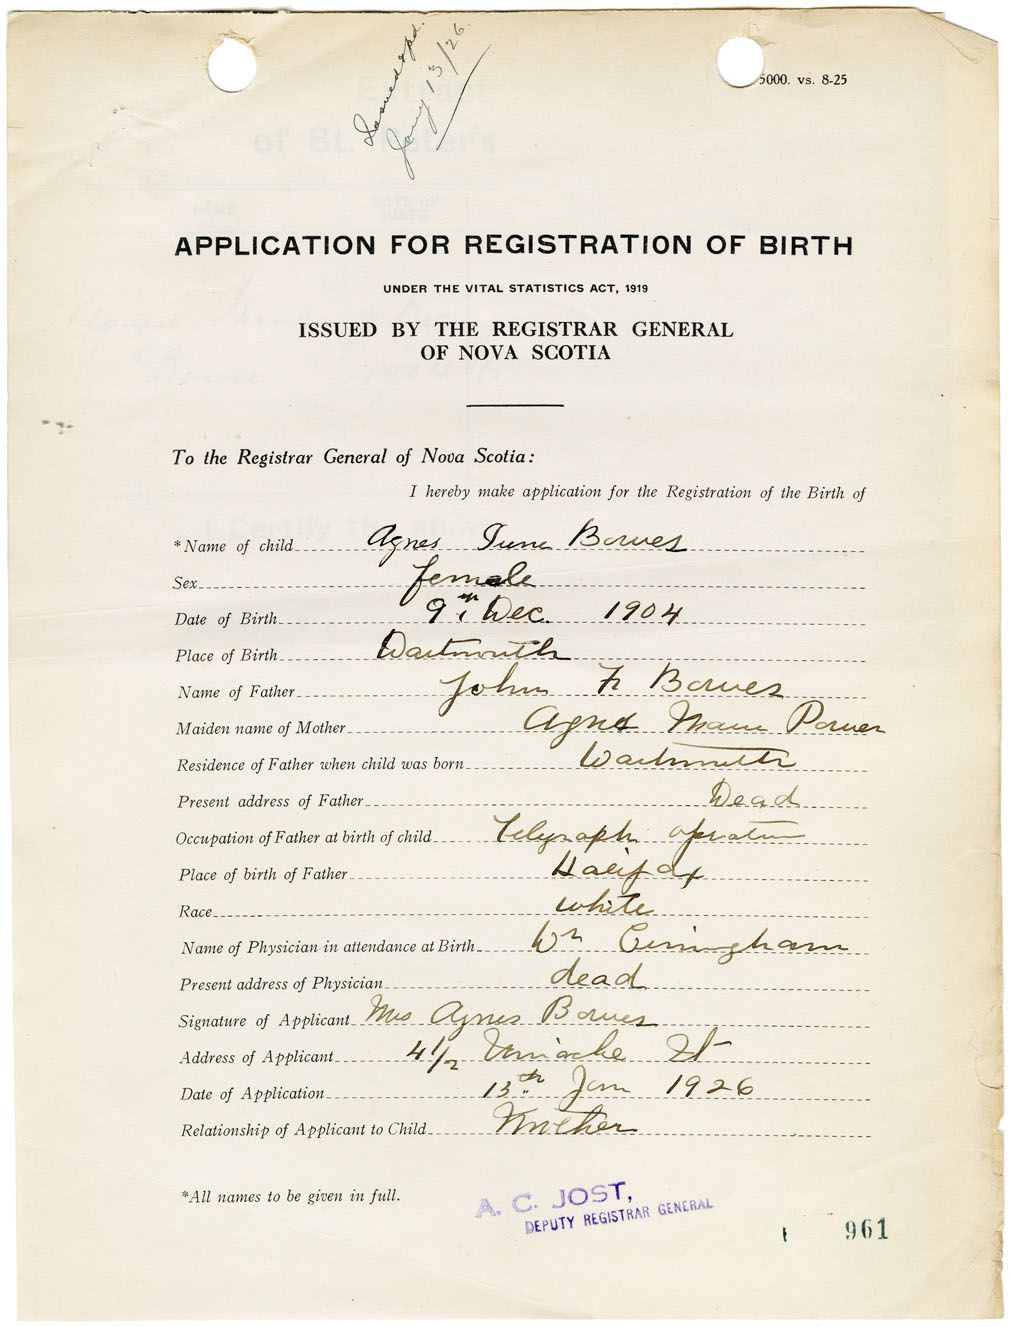 Issued & pd.
Jany 13/26.
5000. vs. 8-25
APPLICATION FOR REGISTRATION OF BIRTH
UNDER THE VITAL STATISTICS ACT, 1919
ISSUED BY THE REGISTRAR GENERAL
OF NOVA SCOTIA
To the Registrar General of Nova Scotia:
I hereby make application for the Registration of the Birth of
*Name of child Agnes Irene Bowes
Sex female
Date of Birth 9th Dec. 1904
Place of Birth Dartmouth
Name of Father John F Bowes
Maiden name of Mother Agnes Marie Power
Residence of Father when child was born Dartmouth
Present address of Father Dead
Occupation of Father at birth of child Telegraph operator
Place of birth of Father Halifax
Race white
Name of Physician in attendance at Birth Wm Cuningham
Present address of Physician dead
Signature of Applicant Mrs Agnes Bowes
Address of Applicant 4 1/2 Uniacke St
Date of Application 13th Jan 1926
Relationship of Applicant to Child Mother
*All names to be given in full.
A. C. JOST,
DEPUTY REGISTRAR GENERAL
961